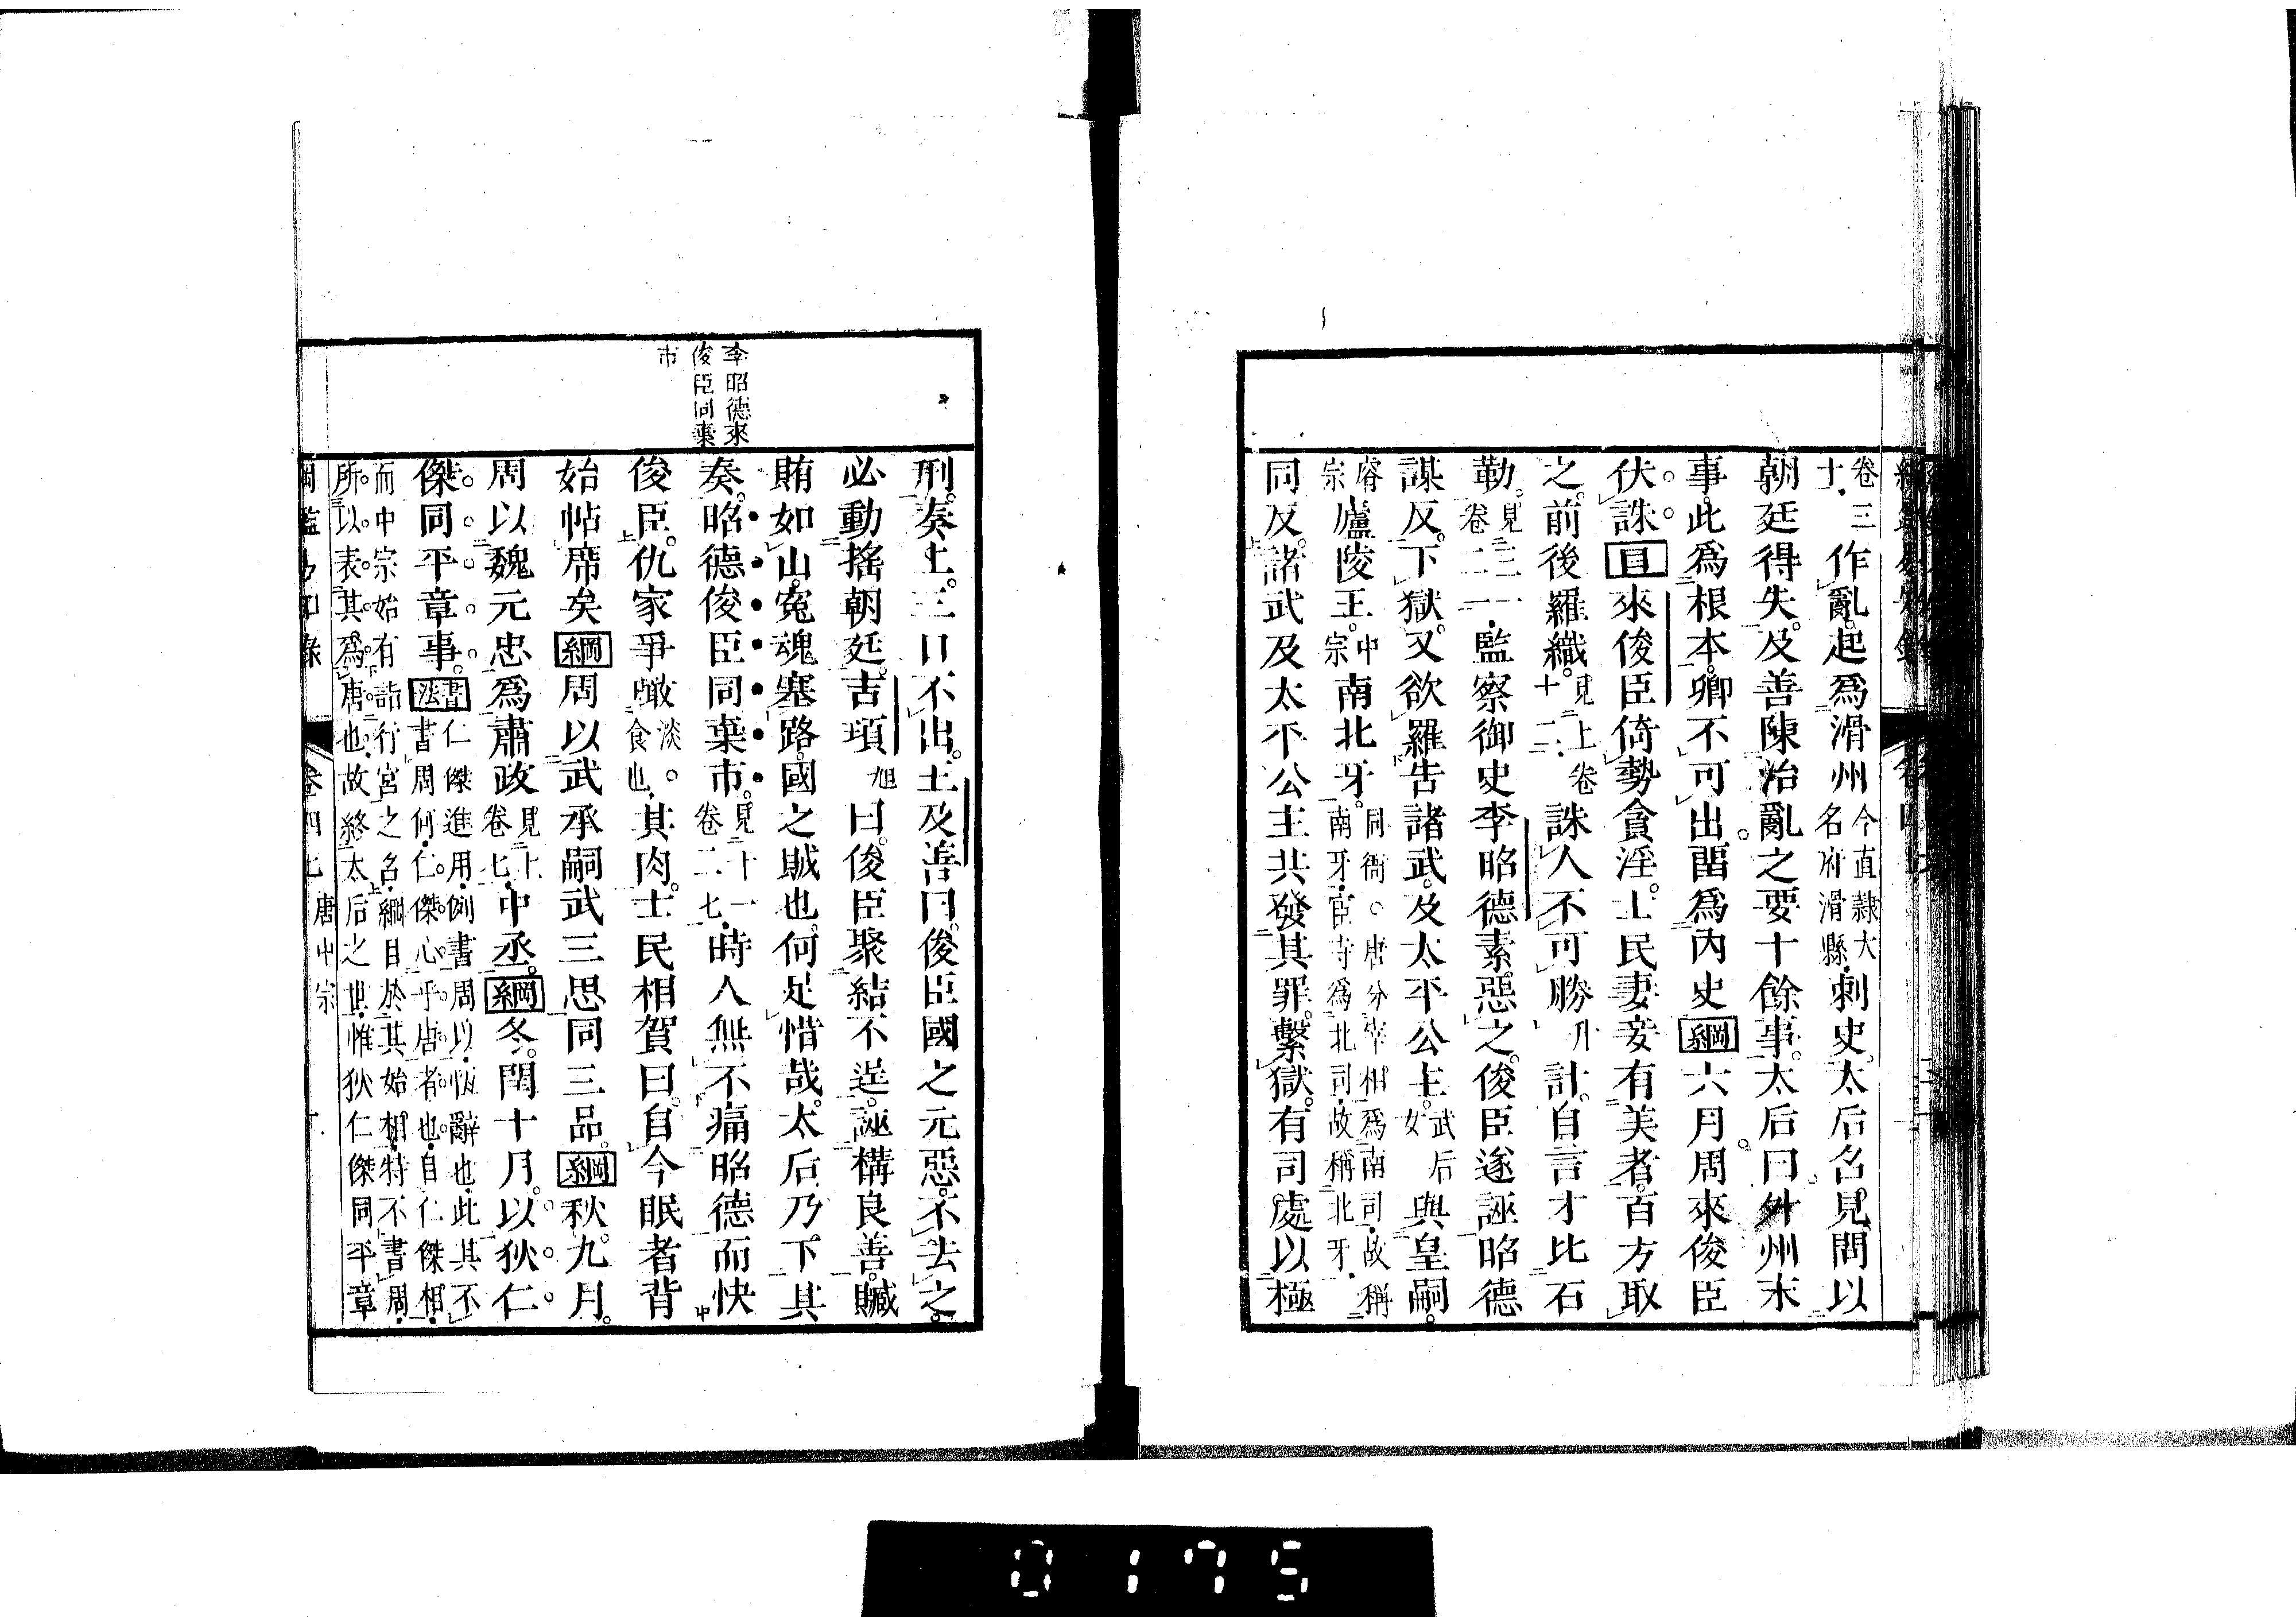 卷三十作亂起爲滑州今直隷大名府滑縣刺史太后召見問以
朝廷得失及善陳治亂之要十餘事太后曰外州末
事此爲根本卿不可出畱爲內史綱六月周來俊臣
伏誅目來俊臣倚勢貪淫士民妻妾有美者百方取
之前後羅織見上卷十二誅人不可勝升計自言才比石
勒見三一卷二一監察御史李昭德素惡之俊臣遂誣昭德
謀反下獄又欲羅告諸武及太平公主武后女與皇嗣
睿宗廬陵王中宗南北牙同衙唐分宰相爲南司故稱南牙宦寺爲北司故稱北牙
同反諸武及太平公主共發其罪繫獄有司處以極
李昭德來
俊臣同棄
市
刑奏上三日不出王及善曰俊臣國之元惡不去之
必動搖朝廷吉頊旭曰俊臣聚結不逞誣構良善贓
賄如山寃魂塞路國之賊也何足惜哉太后乃下其
奏昭德俊臣同棄市見十一卷二七時人無不痛昭德而快
俊臣仇家爭噉淡食也其肉士民相賀曰自今眠者背
始帖席矣綱周以武承嗣武三思同三品綱秋九月
周以魏元忠爲肅政見上卷七中丞綱冬閏十月以狄仁
傑同平章事書法仁傑進用例書周以恆辭也此其不書周何仁傑心乎唐者也自仁傑相
而中宗始有詣行宮之名綱目於其始相特不書周
所以表其爲唐也故終太后之世惟狄仁傑同平章
卷四七 唐中宗
0175